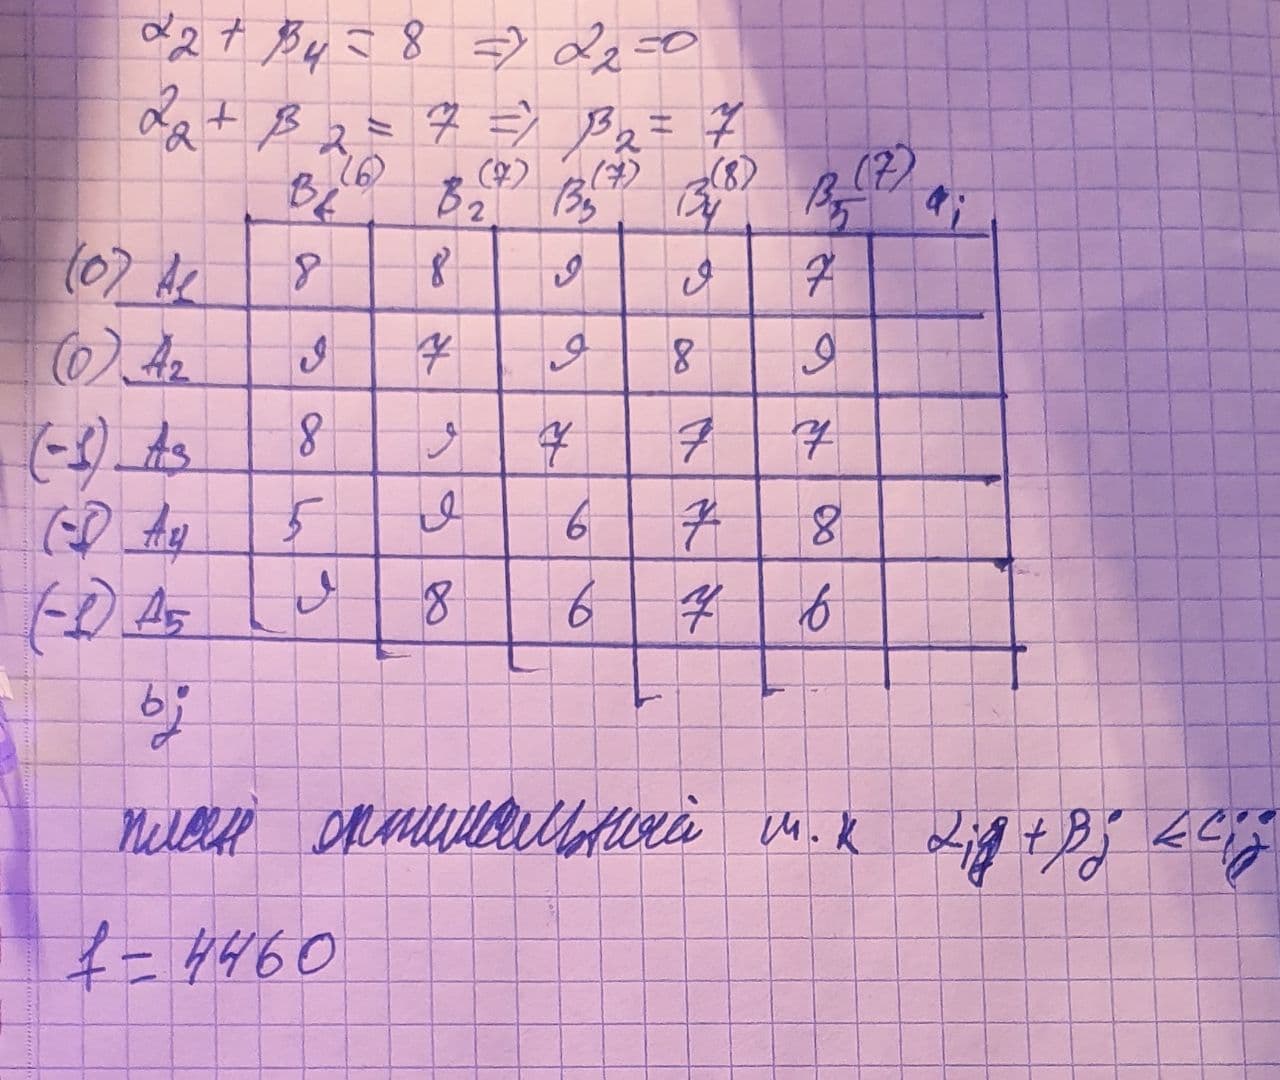 α₂ + β₄ = 8 => α₂ = 0
α₂ + β₂ = 7 => β₂ = 7
B₁(6) B₂(7) B₃(7) B₄(8) B₅(7) aᵢ
(0) A₁ 8 8 9 9 7
(0) A₂ 9 7 9 8 9
(-1) A₃ 8 9 7 7 7
(-1) A₄ 5 9 6 7 8
(-1) A₅ 9 8 6 7 6
bⱼ
план оптимальный т.к αᵢ + βⱼ ≤ cᵢⱼ
f = 4460